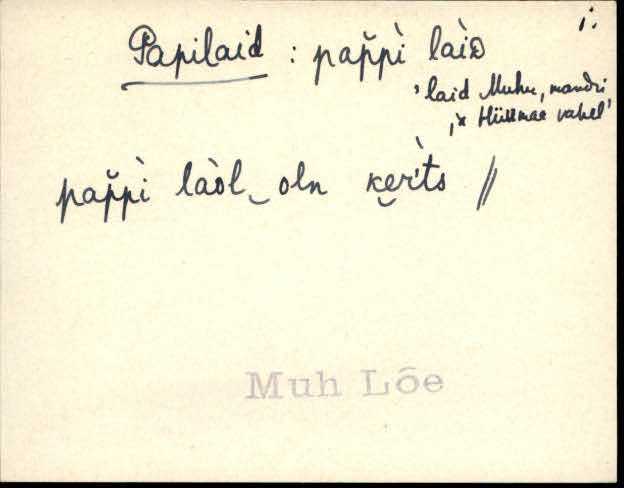 i.
Papilaid : pap̆pì làiᴅ
'laid Muhu, mandri
ja Hiiumaa vahel'
pap̆pì làol‿oln ke̮r'ts //
Muh Lõe